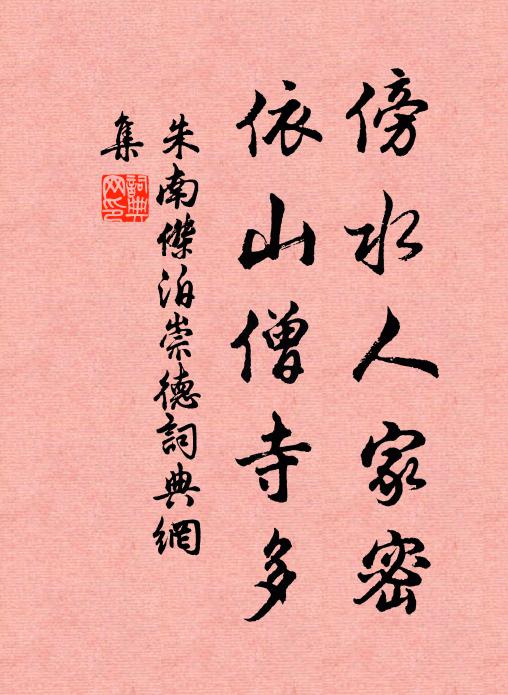 傍水人家密
依山僧寺多
朱南傑泊崇德詞典網
集
詞典
网印